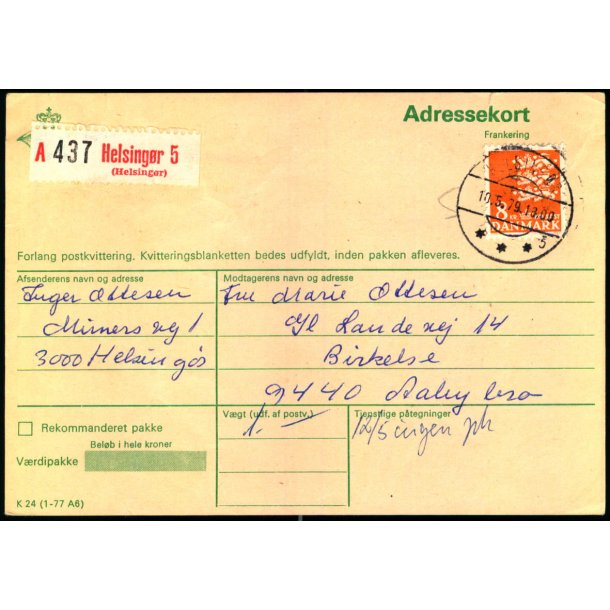 Adressekort
Frankering
A 437 Helsingør 5
(Helsingør)
10.5.79.18.00
8
DANMARK
5
Forlang postkvittering. Kvitteringsblanketten bedes udfyldt, inden pakken afleveres.
Afsenderens navn og adresse
Inger Ottesen
Mimersvej 1
3000 Helsingør
Modtagerens navn og adresse
Fru Marie Ottesen
Gl Landevej 14
Birkelse
9440 Aabybro
Rekommanderet pakke
Beløb i hele kroner
Værdipakke
Vægt (udf. af postv.)
1.-
Tjenstlige påtegninger
12/5 ingen
K 24 (1-77 A6)